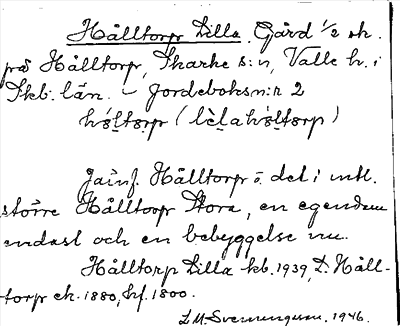 Hålltorp Lilla. Gård 1/2 sk.
på Hålltorp, Skarke s:n, Valle h. i
Skb. län. – Jordeboksn:r 2
hǫltǫrp (lèlahǫltǫrp)
Jämf. Hålltorp ö. det i mtl.
större Hålltorp Stora, en egendom
endast och en bebyggelse nu.
Hålltorp Lilla kb. 1939, L. Håll-
torp ek. 1880, hf. 1800.
L.M. Svenungsson. 1946.